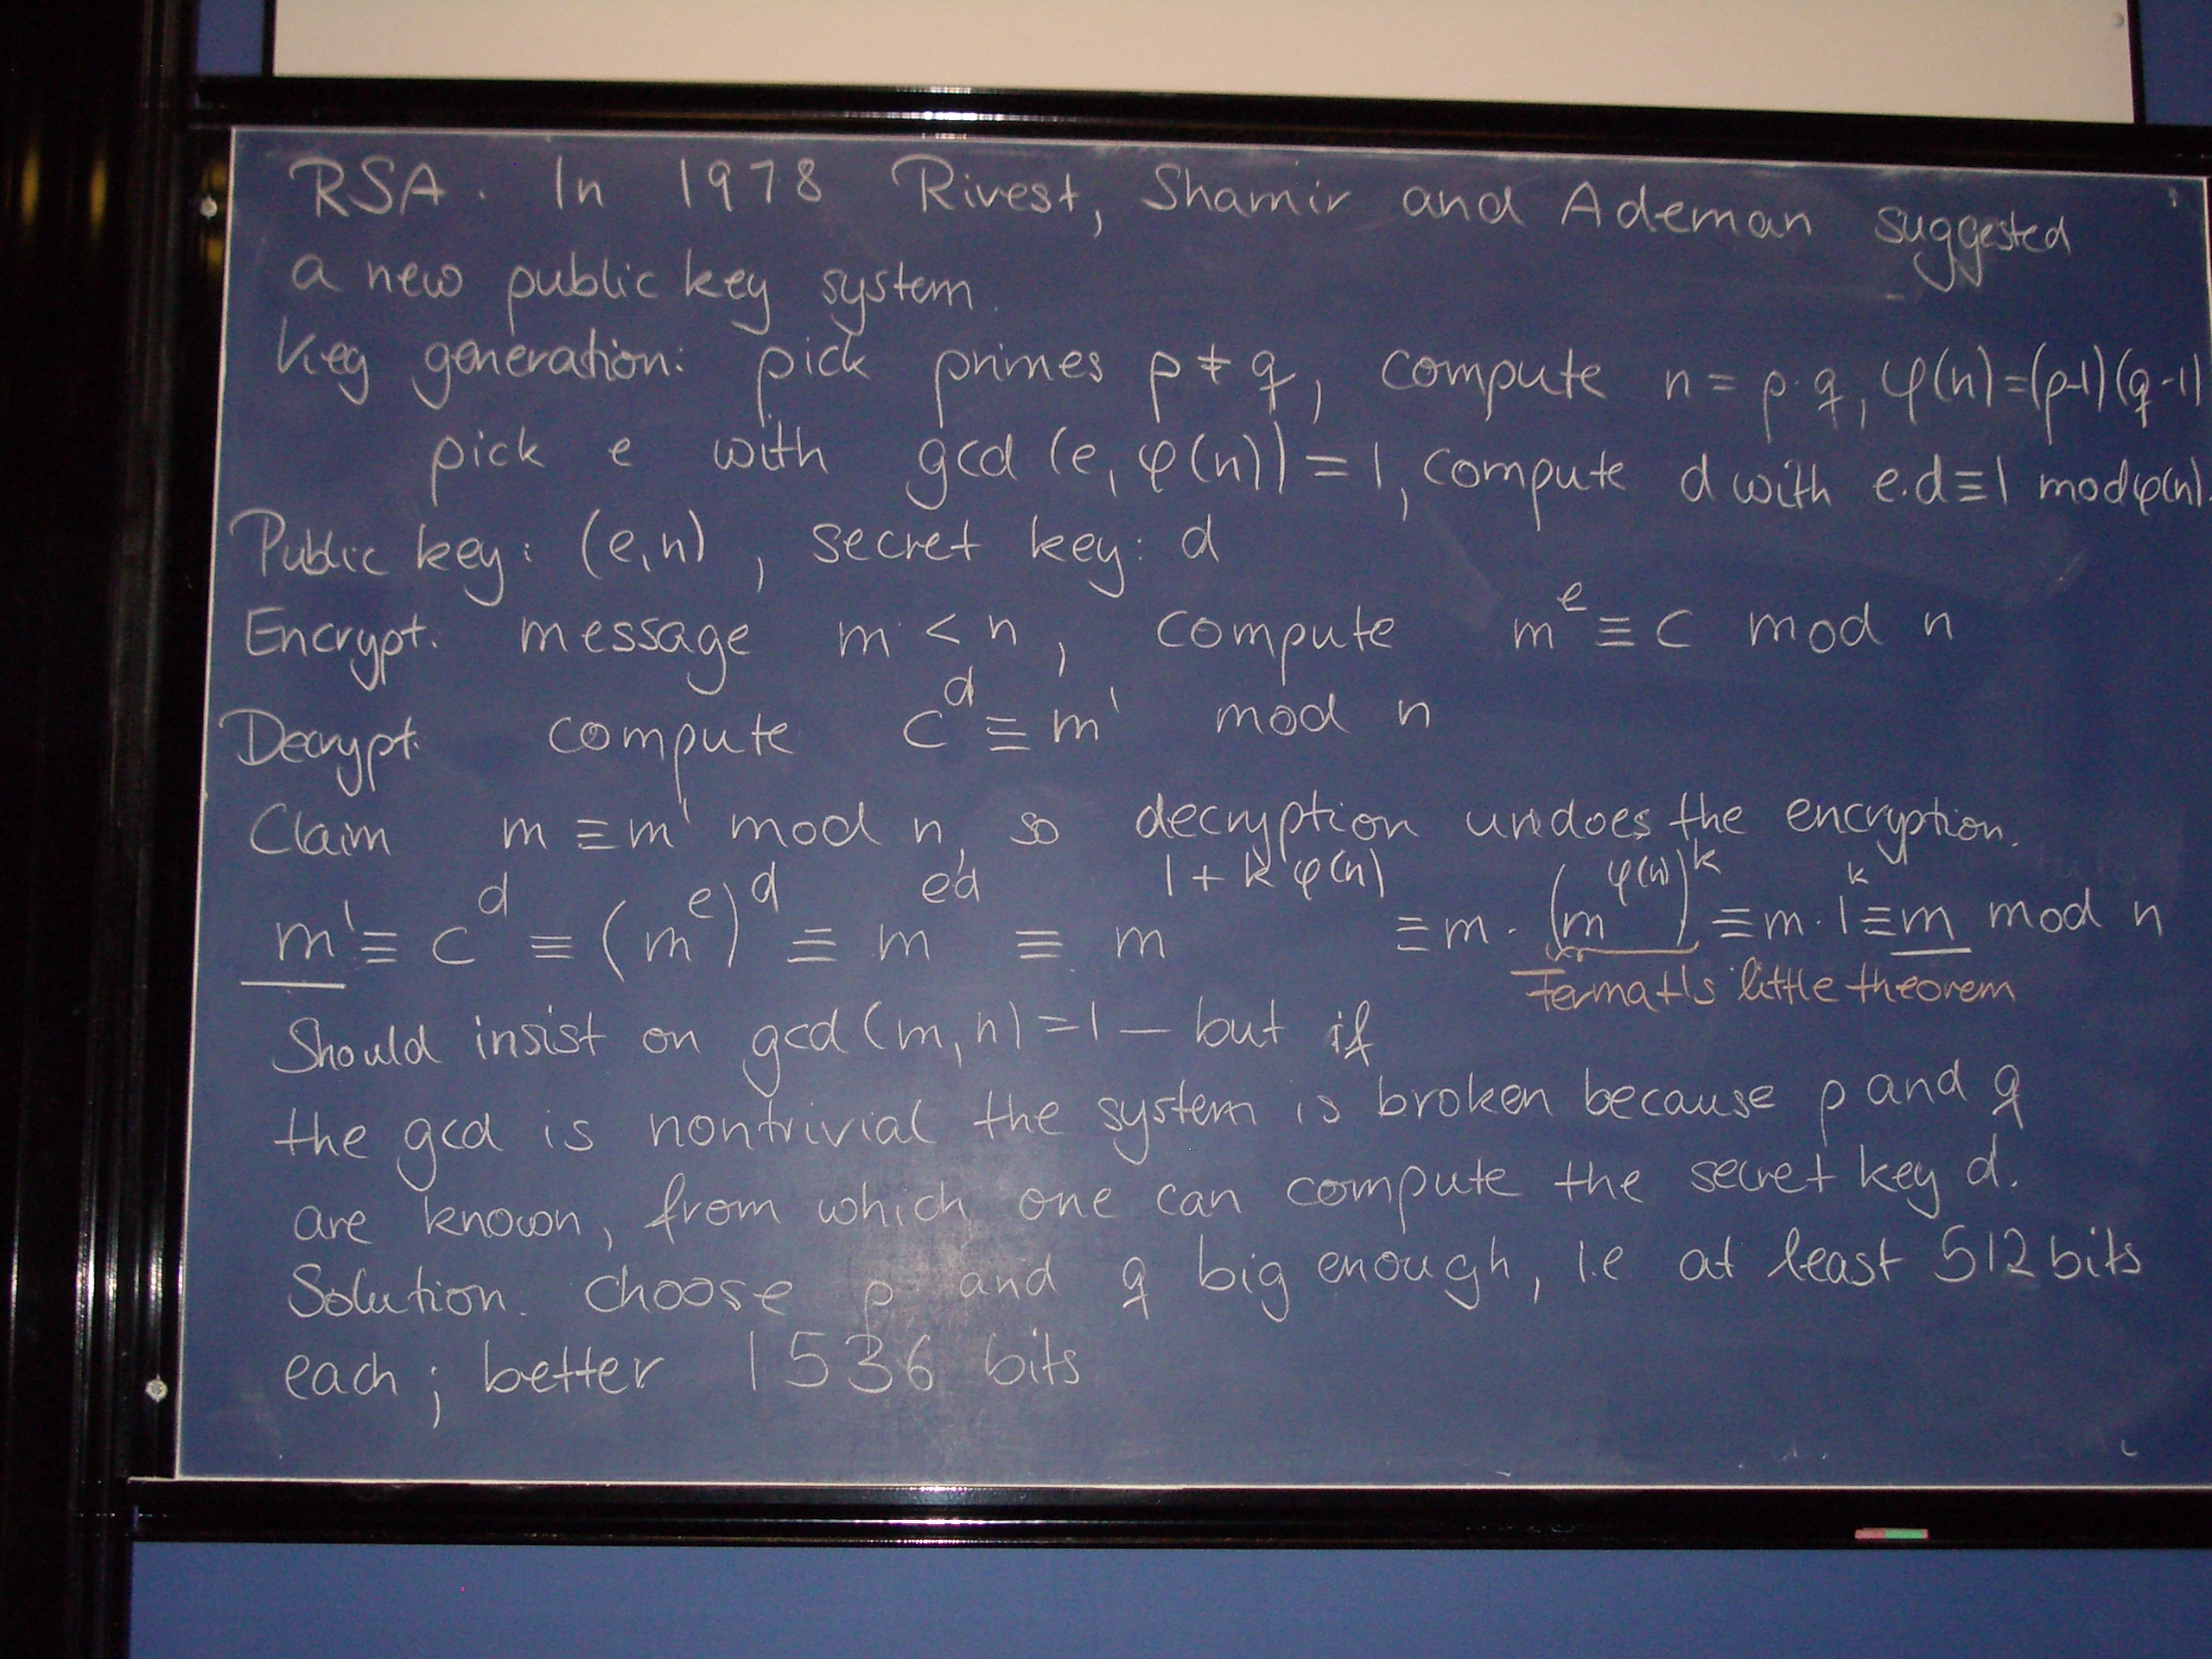 RSA. In 1978 Rivest, Shamir and Ademan suggested
a new public key system.
Key generation: pick primes p ≠ q, compute n = p·q, φ(n)=(p-1)(q-1)
pick e with gcd(e, φ(n)) = 1, compute d with e.d≡1 mod φ(n).
Public key: (e,n), secret key: d
Encrypt. message m < n, compute m^e ≡ c mod n
Decrypt. compute c^d ≡ m' mod n
Claim m ≡ m' mod n, so decryption undoes the encryption.
m' ≡ c^d ≡ (m^e)^d ≡ m^{e·d} ≡ m^{1+kφ(n)} ≡ m·(m^{φ(n)})^k ≡ m·1^k ≡ m mod n
Fermat's little theorem
Should insist on gcd(m,n)=1 – but if
the gcd is nontrivial the system is broken because p and q
are known, from which one can compute the secret key d.
Solution. choose p and q big enough, i.e at least 512 bits
each; better 1536 bits